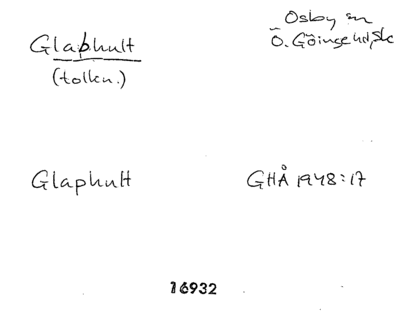 Glaphult
(tolkn.)
Osby sn
Ö. Göinge hd, Sk
Glaphult
GHÅ 1948:17
16932